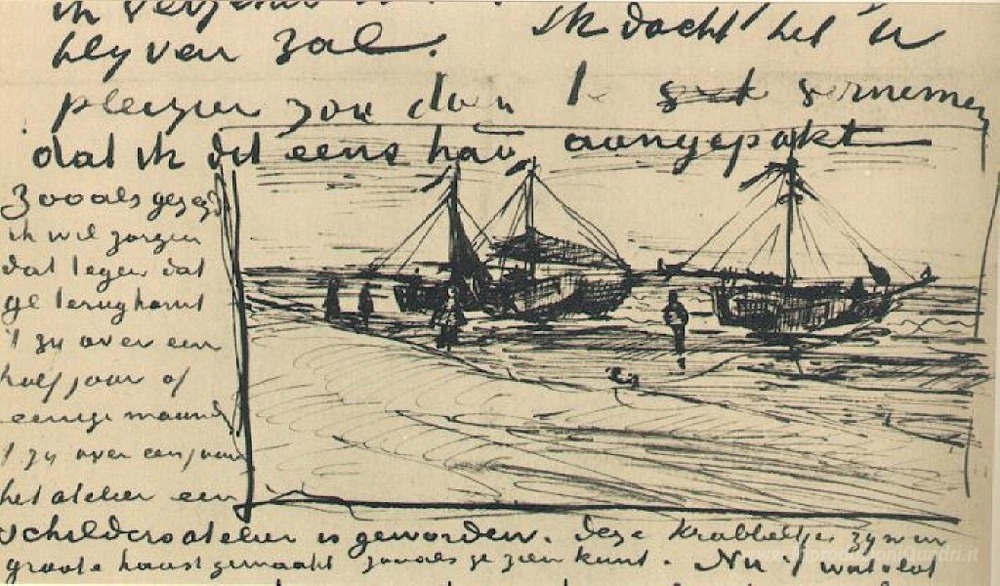 blyven zal. Ik dacht het U
pleizier zou doen te vernemen
dat ik dit eens had aangepakt
Zooals gezegd
ik wil zorgen
dat tegen dat
ge terugkomt
't zij over een
half jaar of
eenige maand
't zij over een jaar
het atelier een
schildersatelier is geworden. Deze krabbeltjes zyn in
groote haast gemaakt zooals ge zien kunt. Nu